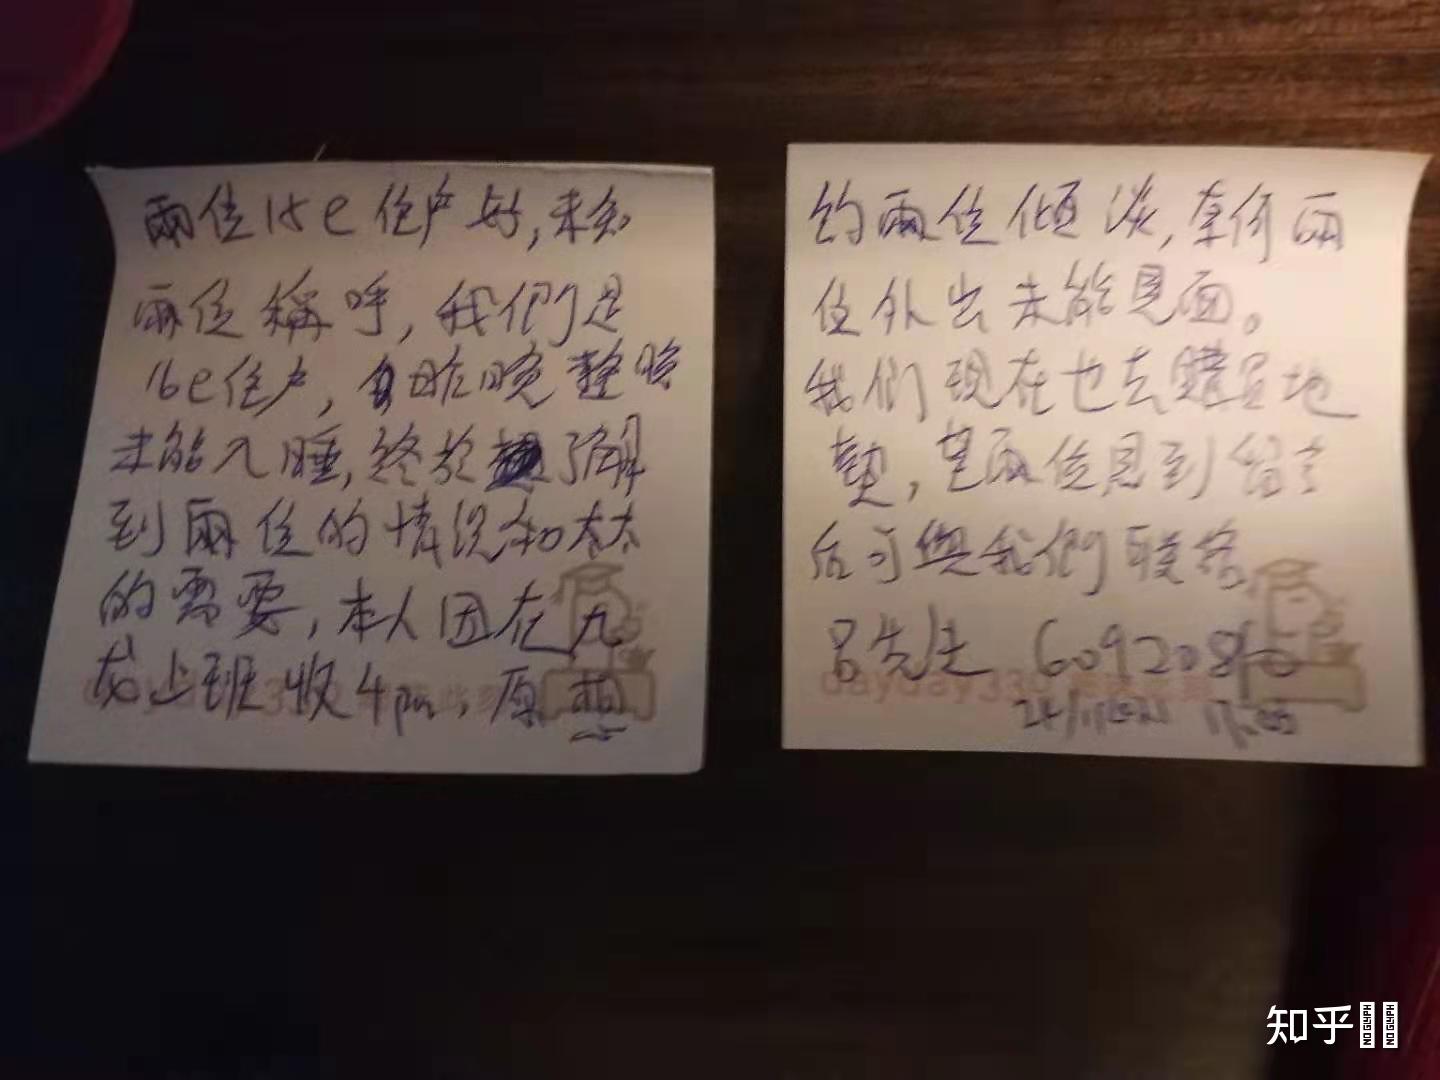 兩位15e住户好，未知
兩位稱呼，我們是
16e住户，自昨晚整晚
未能入睡，終於了解
到兩位的情況和太太
的需要，本人因在九
龙上班收4pm，原想
约兩位傾淡，奈何兩
位外出未能見面。
我們現在也去購買地
墊，望兩位見到留言
后可與我們联络
吕先生
dayday330
知乎